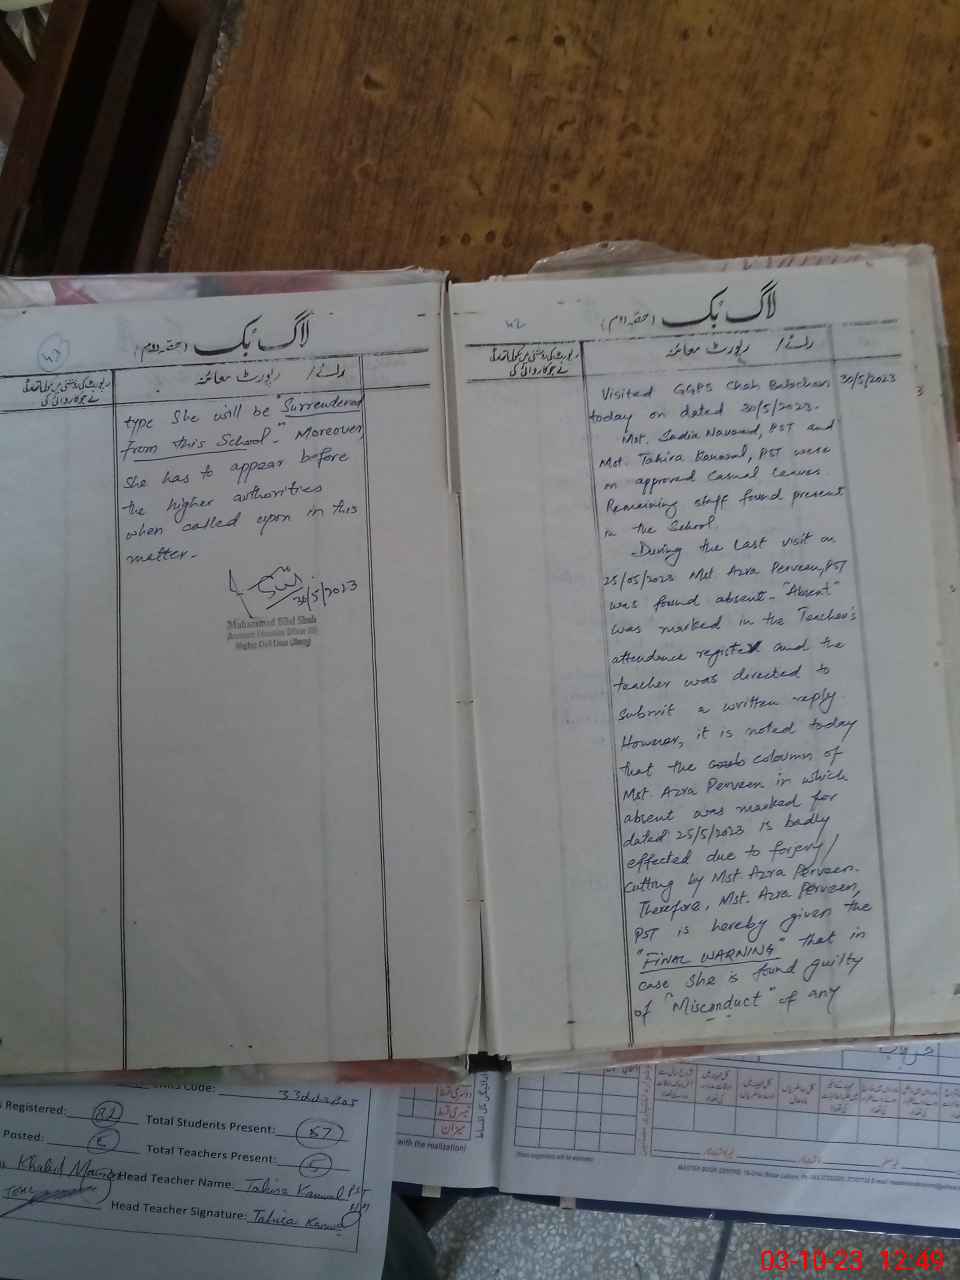 42
لاگ بک (حصہ دوم)
رائے / رپورٹ معائنہ
Visited GGPS Chah Babchan 30/5/2023
today on dated 30/5/2023.
Mst. Sadia Navared, PST and
Mst. Tahira Kanwal, PST were
on approved Casual Leaves.
Remaining staff found present
in the School.
During the last visit on
25/05/2023 Mst. Azra Perveen, PST
was found absent. "Absent"
was marked in the Teacher's
attendence register and the
teacher was directed to
submit a written reply.
However, it is noted today
that the coloumn of
Mst. Azra Perveen in which
absent was marked for
dated 25/5/2023 is badly
effected due to forjery/
cutting by Mst Azra Perveen.
Therefore, Mst. Azra Perveen,
PST is hereby given the
"FINAL WARNING" that in
case she is found guilty
of "Misconduct" of any
43
لاگ بک (حصہ دوم)
رائے / رپورٹ معائنہ
type she will be "Surrendered
from this School." Moreover,
she has to appear before
the higher authorities
when called upon in this
matter.
30/5/2023
Muhammad Bilal Shah
Code:
Registered: 82 Total Students Present: 57
Posted: 5 Total Teachers Present: 5
Khalid Head Teacher Name: Tahira Kanwal PST
Head Teacher Signature: Tahira Kanwal
(with the realization)
دوسری قسط
تیسری قسط
میزان
03-10-23 12:49